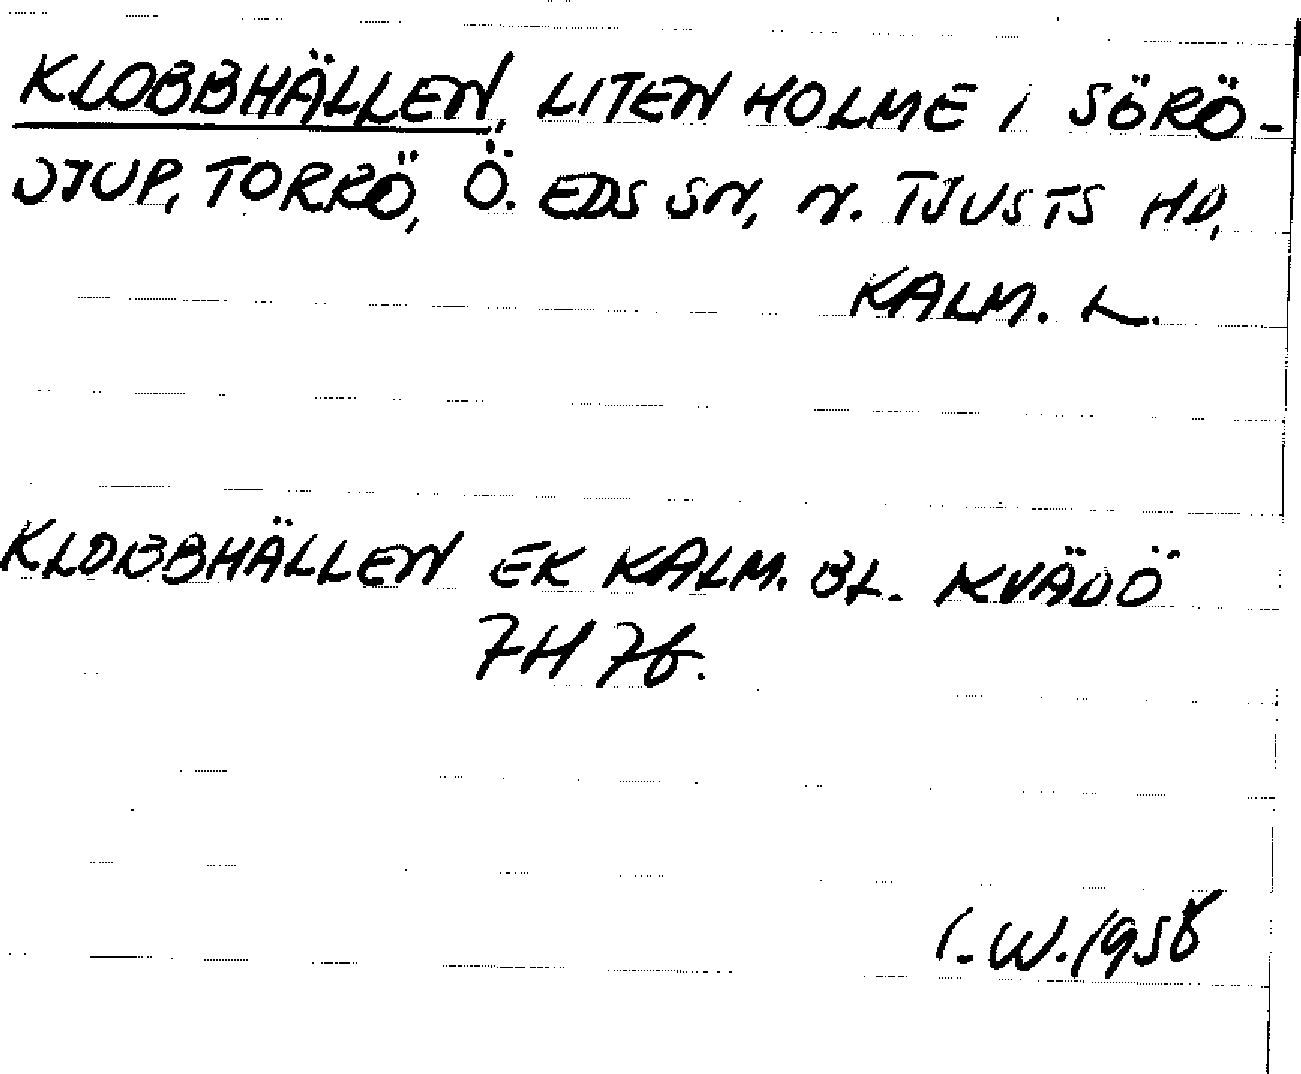 KLOBBHÄLLEN, LITEN HOLME I SÖRÖ-
DJUP, TORRÖ, Ö. EDS SN, N. TJUSTS HD,
KALM. L.
KLOBBHÄLLEN EK KALM. BL. KVÄDÖ
7H 7b.
I. W. 1958